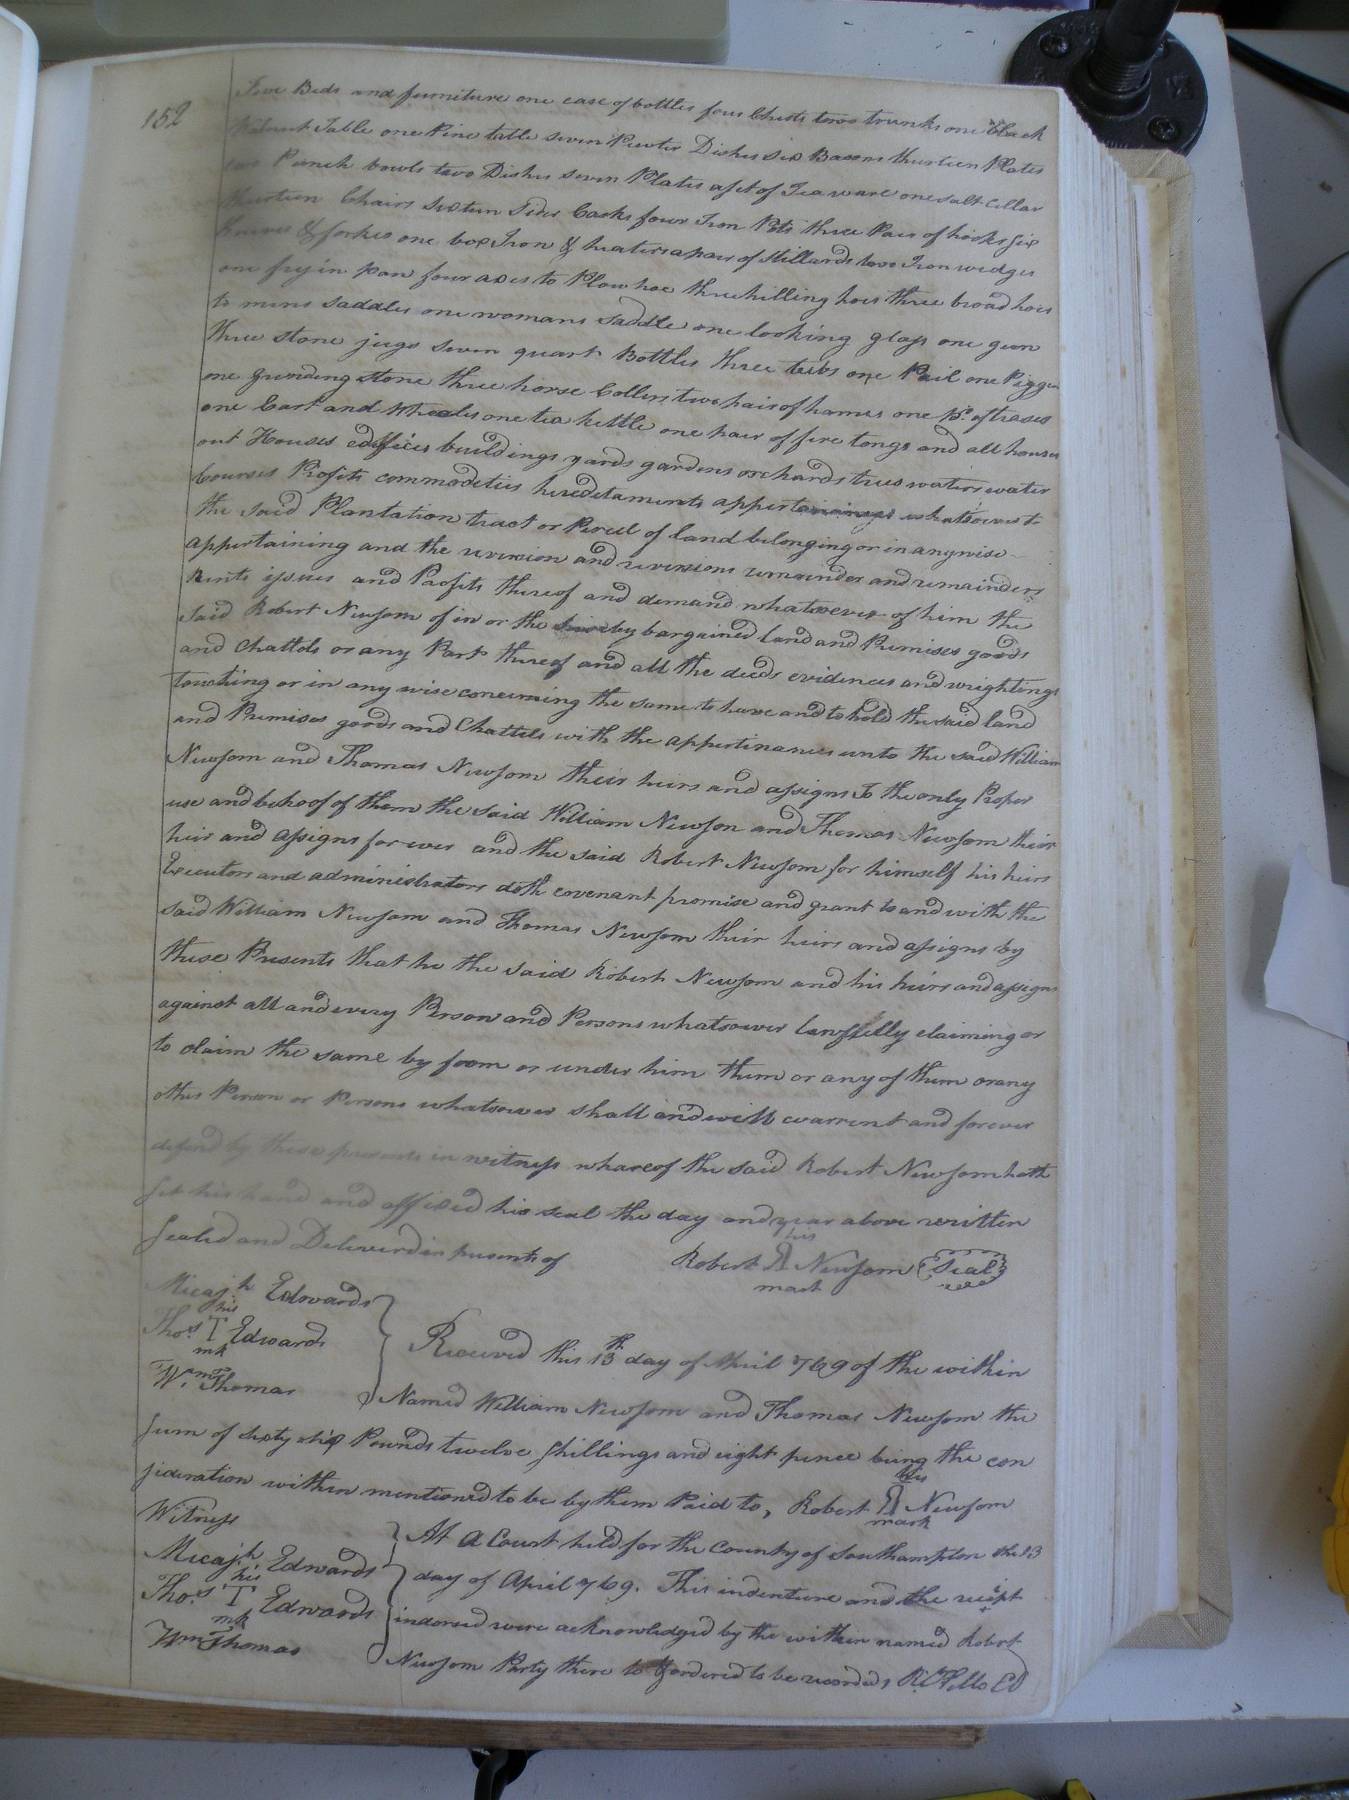 152
Five Beds and furniture one case of bottles four Chests two trunks one black
Walnut Table one Pine table seven Pewter Dishes six Basons thurteen Plates
two Punch bowls two Dishes seven Plates a set of Tea ware one salt Cellar
thurteen Chairs sixteen Sider Casks four Iron Pots three Pair of hooks six
knives & forkes one box Iron & heaters a pair of Stillards two Iron wedges
one fryin pan four axes to Plow hoe three hilling hoes three broad hoes
to mens saddles one womans saddle one looking glass one gun
three stone jugs seven quart Bottles three tubs one Pail one Piggen
one grinding stone three horse Collers two hair of hames one Pr. of trases
one Cart and Wheeles one tea kettle one pair of fire tongs and all houses
out Houses edffices buildings yards gardens orchards trees waters water
Courses Profits commodeties hereditaments appertainings whatsoever to
the said Plantation tract or Percel of land belonging or in anywise
appertaining and the revirsion and revirsions remainder and remainders
Rents issues and Profits thereof and demand whatsoever of him the
said Robert Newsom of in or the by bargained land and Premises goods
and chattels or any Part thereof and all the deeds evidences and wrightings
touching or in any wise concerning the same to have and to hold the said land
and Premises goods and Chattels with the appertinances unto the said William
Newsom and Thomas Newsom their heirs and assigns To the only Proper
use and behoof of them the said William Newson and Thomas Newsom their
heir and assigns for ever and the said Robert Newsom for himself his heirs
Executors and administrators doth covenant promise and grant to and with the
said William Newsom and Thomas Newsom their heirs and assigns by
these Presents that he the said Robert Newsom and his heirs and assigns
against all and every Person and Persons whatsoever lawffully claiming or
to claim the same by from or under him them or any of them or any
other Person or Persons whatsoever shall and will warrent and forever
defend by these presents in witness whareof the said Robert Newsom hath
set his hand and affixed his seal the day and year above written
Sealed and Deliverd in presents of
his
Robert R Newsom Seal
mark
Micajh Edwards
his
Thos. T Edwards
mk
Wm. Thomas
Received this 13th day of April 1769 of the within
Named William Newsom and Thomas Newsom the
Sum of sixty six Pounds twelve shillings and eight pence being the con
sideration within mentioned to be by them Paid to, Robert R Newsom
his
mark
Witness
Micajh Edwards
his
Thos. T Edwards
mk
Wm Thomas
At a Court held for the County of Southampton the 13
day of April 1769. This indenture and the receipt
indorsed were acknowledged by the within named Robert
Newsom Party there to & ordered to be recorded,